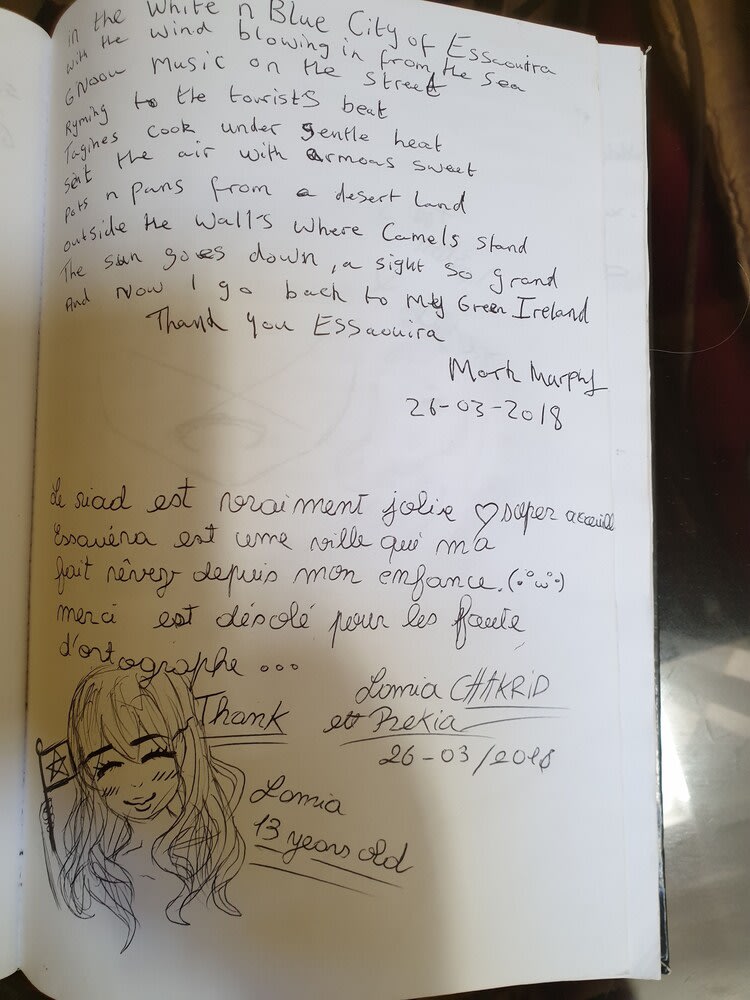 in the White n Blue City of Essaouira
with the wind blowing in from the sea
GNaou Music on the Street
Ryming to the tourists beat
Tagines cook under gentle heat
Sent the air with armoas sweet
Pots n pans from a desert Land
outside the Wall's where Camels stand
The sun goes down, a sight so grand
And Now I go back to My Green Ireland
Thank you Essaouira
Mark Murphy
26-03-2018
Le riad est vraiment jolie ♡ super accueille
Essauéra est une ville qui m'a
fait rêvez depuis mon enfance.
merci est désolé pour les faute
d'ortographe ...
Thank
Lamia CHAKRID
et Rekia
26-03/2018
Lamia
13 years old